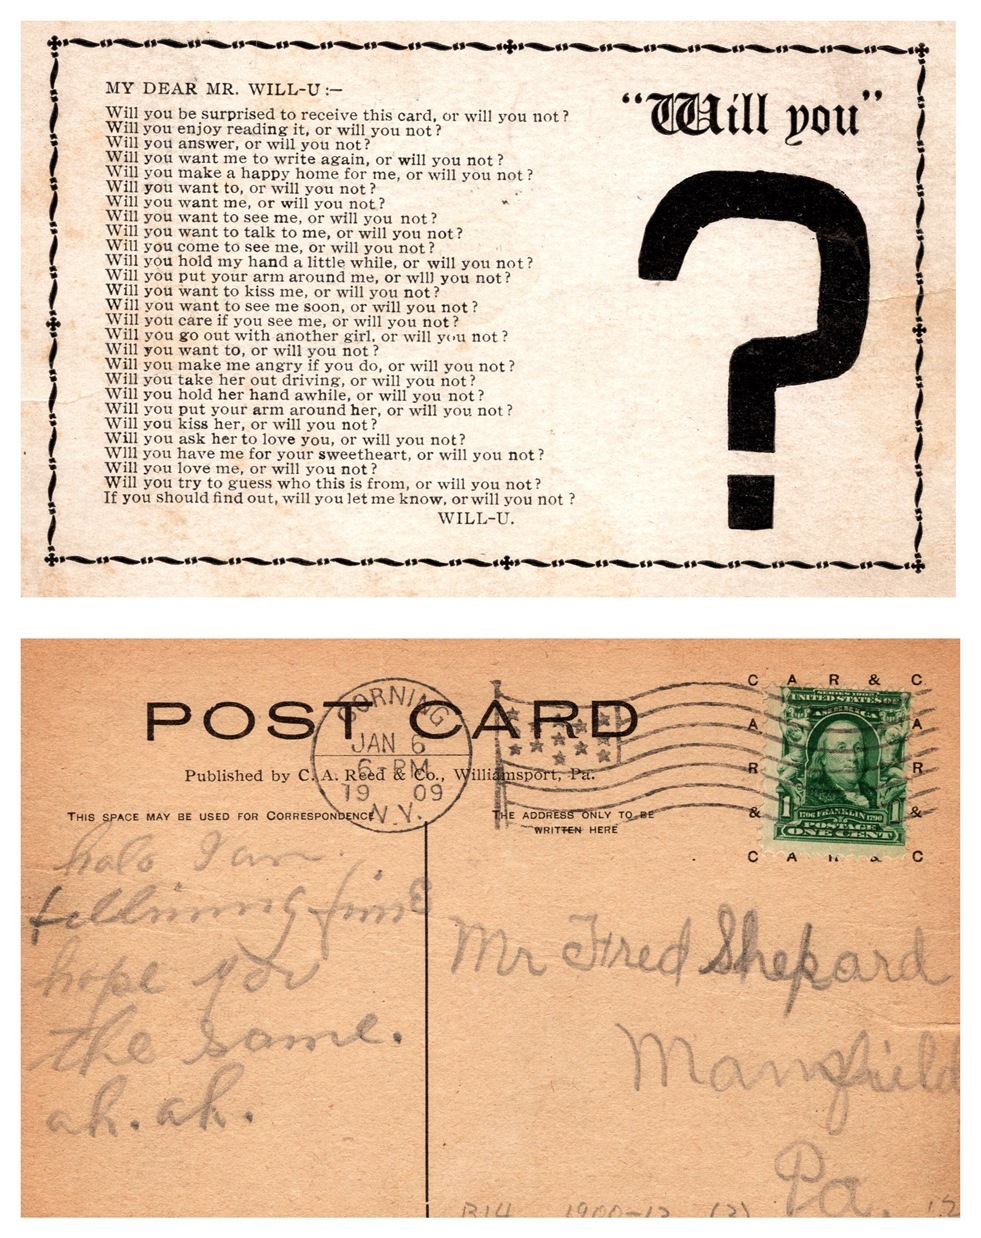 MY DEAR MR. WILL-U:—
Will you be surprised to receive this card, or will you not?
Will you enjoy reading it, or will you not?
Will you answer, or will you not?
Will you want me to write again, or will you not?
Will you make a happy home for me, or will you not?
Will you want to, or will you not?
Will you want me, or will you not?
Will you want to see me, or will you not?
Will you want to talk to me, or will you not?
Will you come to see me, or will you not?
Will you hold my hand a little while, or will you not?
Will you put your arm around me, or will you not?
Will you want to kiss me, or will you not?
Will you want to see me soon, or will you not?
Will you care if you see me, or will you not?
Will you go out with another girl, or will you not?
Will you want to, or will you not?
Will you make me angry if you do, or will you not?
Will you take her out driving, or will you not?
Will you hold her hand awhile, or will you not?
Will you put your arm around her, or will you not?
Will you kiss her, or will you not?
Will you ask her to love you, or will you not?
Will you have me for your sweetheart, or will you not?
Will you love me, or will you not?
Will you try to guess who this is from, or will you not?
If you should find out, will you let me know, or will you not?
WILL-U.
"Will you"
?
POST CARD
Published by C. A. Reed & Co., Williamsport, Pa.
THIS SPACE MAY BE USED FOR CORRESPONDENCE
THE ADDRESS ONLY TO BE
WRITTEN HERE
CORNING
JAN 6
6-PM
19 09
N.Y.
C A R & C
A A
R R
& &
C A R & C
SERIES 1902
UNITED STATES OF
AMERICA
1 1706 FRANKLIN 1790 1
POSTAGE
ONE CENT
halo I am
fellining fine
hope you
the same.
ah. ah.
Mr Fred Shepard
Mansfield
Pa.
B14 1900-12 (2)